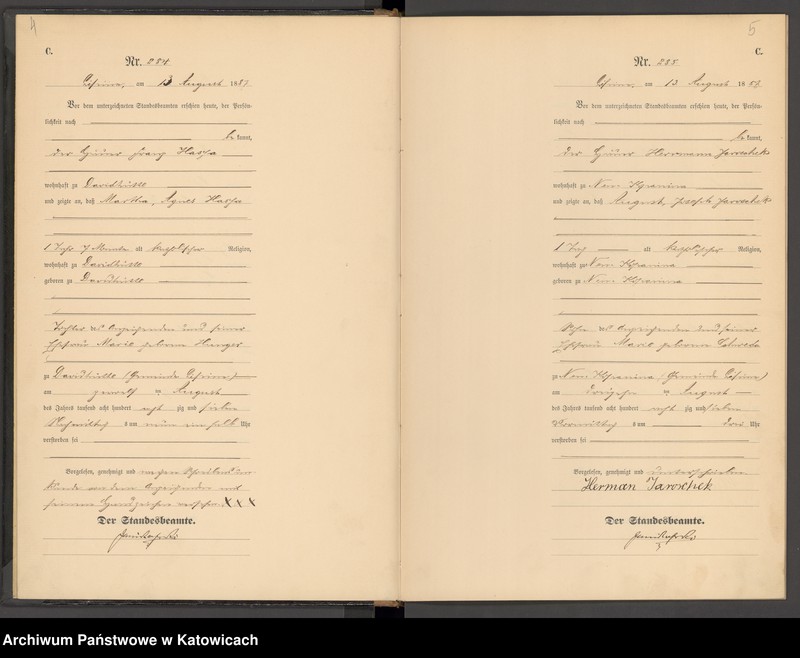 4
C.
Nr. 284
am 13 August 1887
Vor dem unterzeichneten Standesbeamten erschien heute, der Persön-
lichkeit nach
be kannt,
der Häuer Franz
wohnhaft zu Davidhütte
und zeigte an, daß Martha, Agnes
1 Jahr 7 Monate alt katholischer Religion,
wohnhaft zu Davidhütte
geboren zu Davidhütte
Tochter des Anzeigenden und seiner
Ehefrau Marie geborene
zu Davidhütte (Gemeinde
am zwölf ten August
des Jahres tausend acht hundert acht zig und sieben
Nachmittag s um neun ein halb Uhr
verstorben sei
Vorgelesen, genehmigt und wegen Schreibens un-
kunde von dem Anzeigenden mit
seinem Handzeichen versehen X X X
Der Standesbeamte.
5
C.
Nr. 285
am 13 August 1887
Vor dem unterzeichneten Standesbeamten erschien heute, der Persön-
lichkeit nach
be kannt,
der Häuer Herrmann Jaroschek
wohnhaft zu Neu
und zeigte an, daß August, Joseph Jaroschek
1 Tag alt katholischer Religion,
wohnhaft zu Neu
geboren zu Neu
Sohn des Anzeigenden und seiner
Ehefrau Marie geborene
zu Neu (Gemeinde
am dreizehn ten August
des Jahres tausend acht hundert acht zig und sieben
Vormittag s um drei Uhr
verstorben sei
Vorgelesen, genehmigt und unterschrieben
Herman Jaroschek
Der Standesbeamte.
Archiwum Państwowe w Katowicach